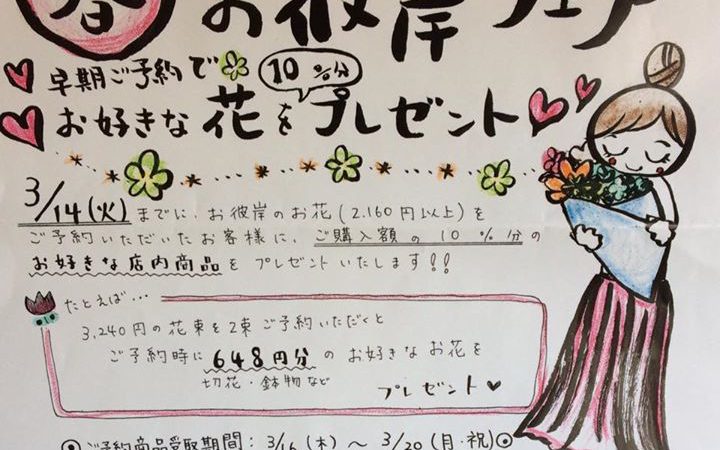 春 お彼岸フェア
早期ご予約で 10%分
お好きな花をプレゼント
3/14(火)までに、お彼岸のお花(2.160円以上)を
ご予約いただいたお客様に、ご購入額の10%分の
お好きな店内商品をプレゼントいたします!!
たとえば…
3,240円の花束を2束ご予約いただくと
ご予約時に648円分のお好きなお花を
切花・鉢物など プレゼント
ご予約商品受取期間:3/16(木)〜3/20(月・祝)